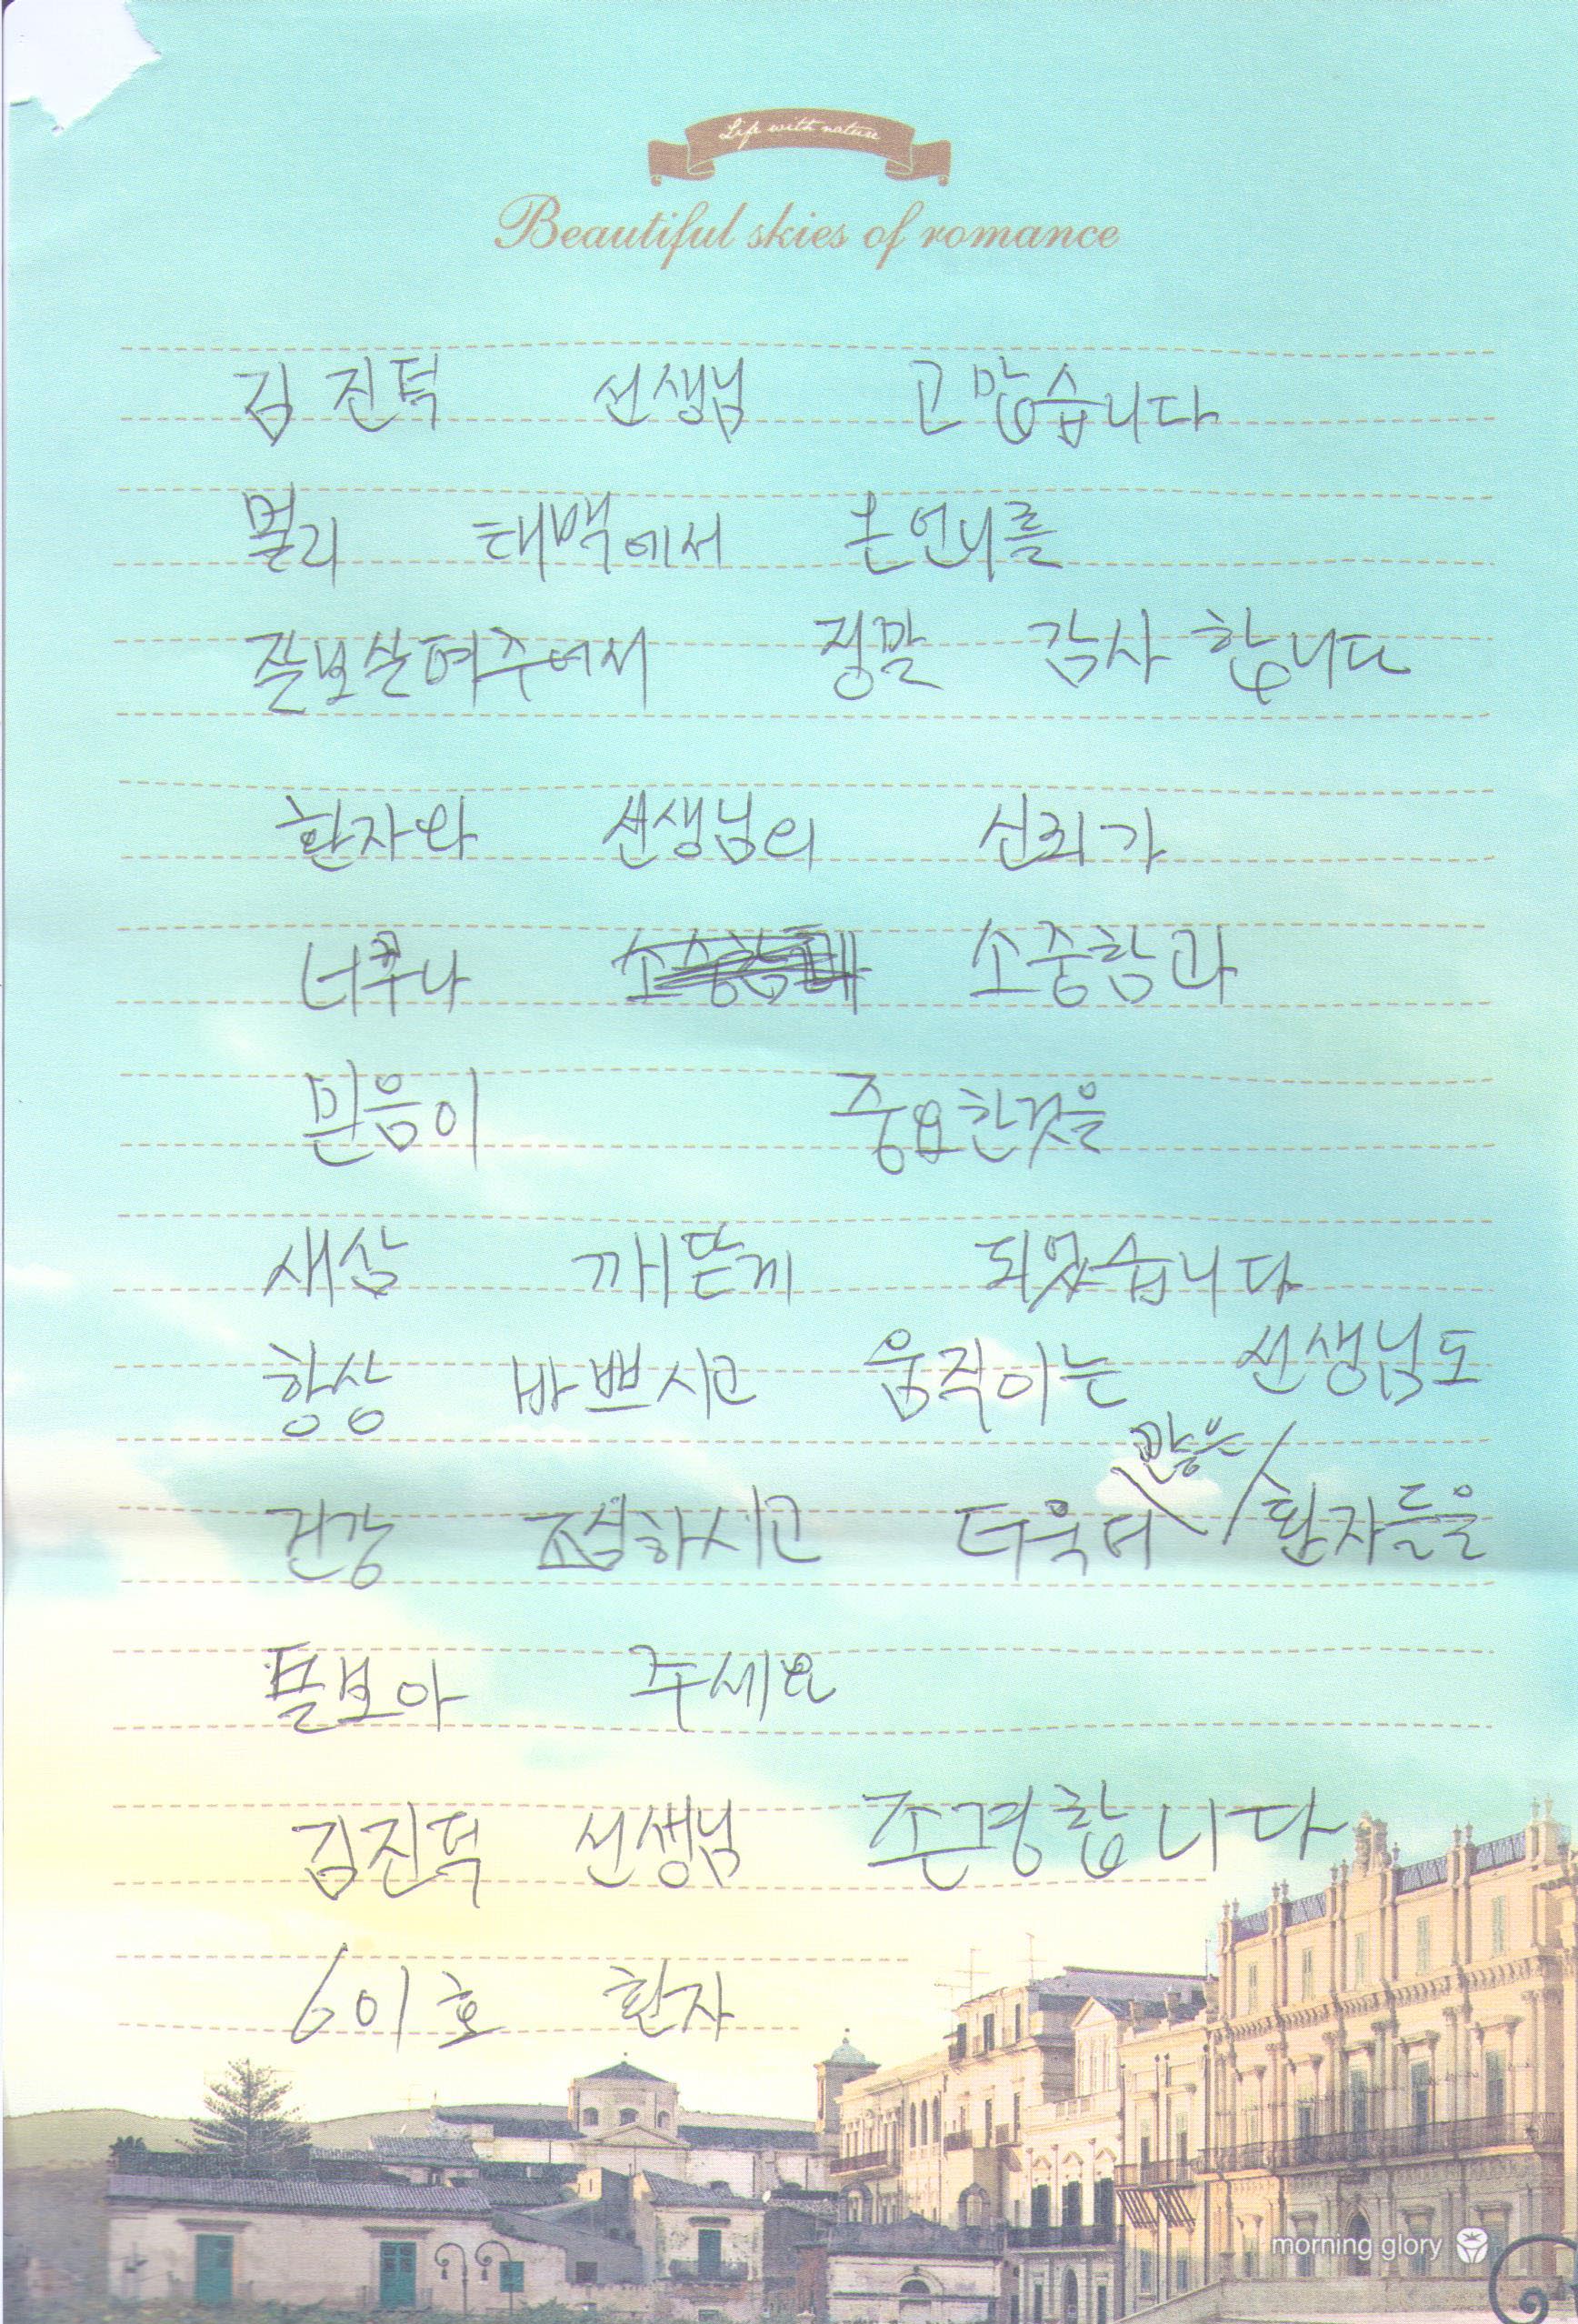 Life with nature
Beautiful skies of romance
김진덕 선생님 고맙습니다
멀리 태백에서 온언니를
잘보살펴주어서 정말 감사합니다
환자와 선생님의 신뢰가
너무나 소중함과
믿음이 중요한것을
새삼 깨닫게 되었습니다
항상 바쁘시고 움직이는 선생님도
건강 조심하시고 더욱더 많은 환자들을
돌보아 주세요
김진덕 선생님 존경합니다
601호 환자
morning glory